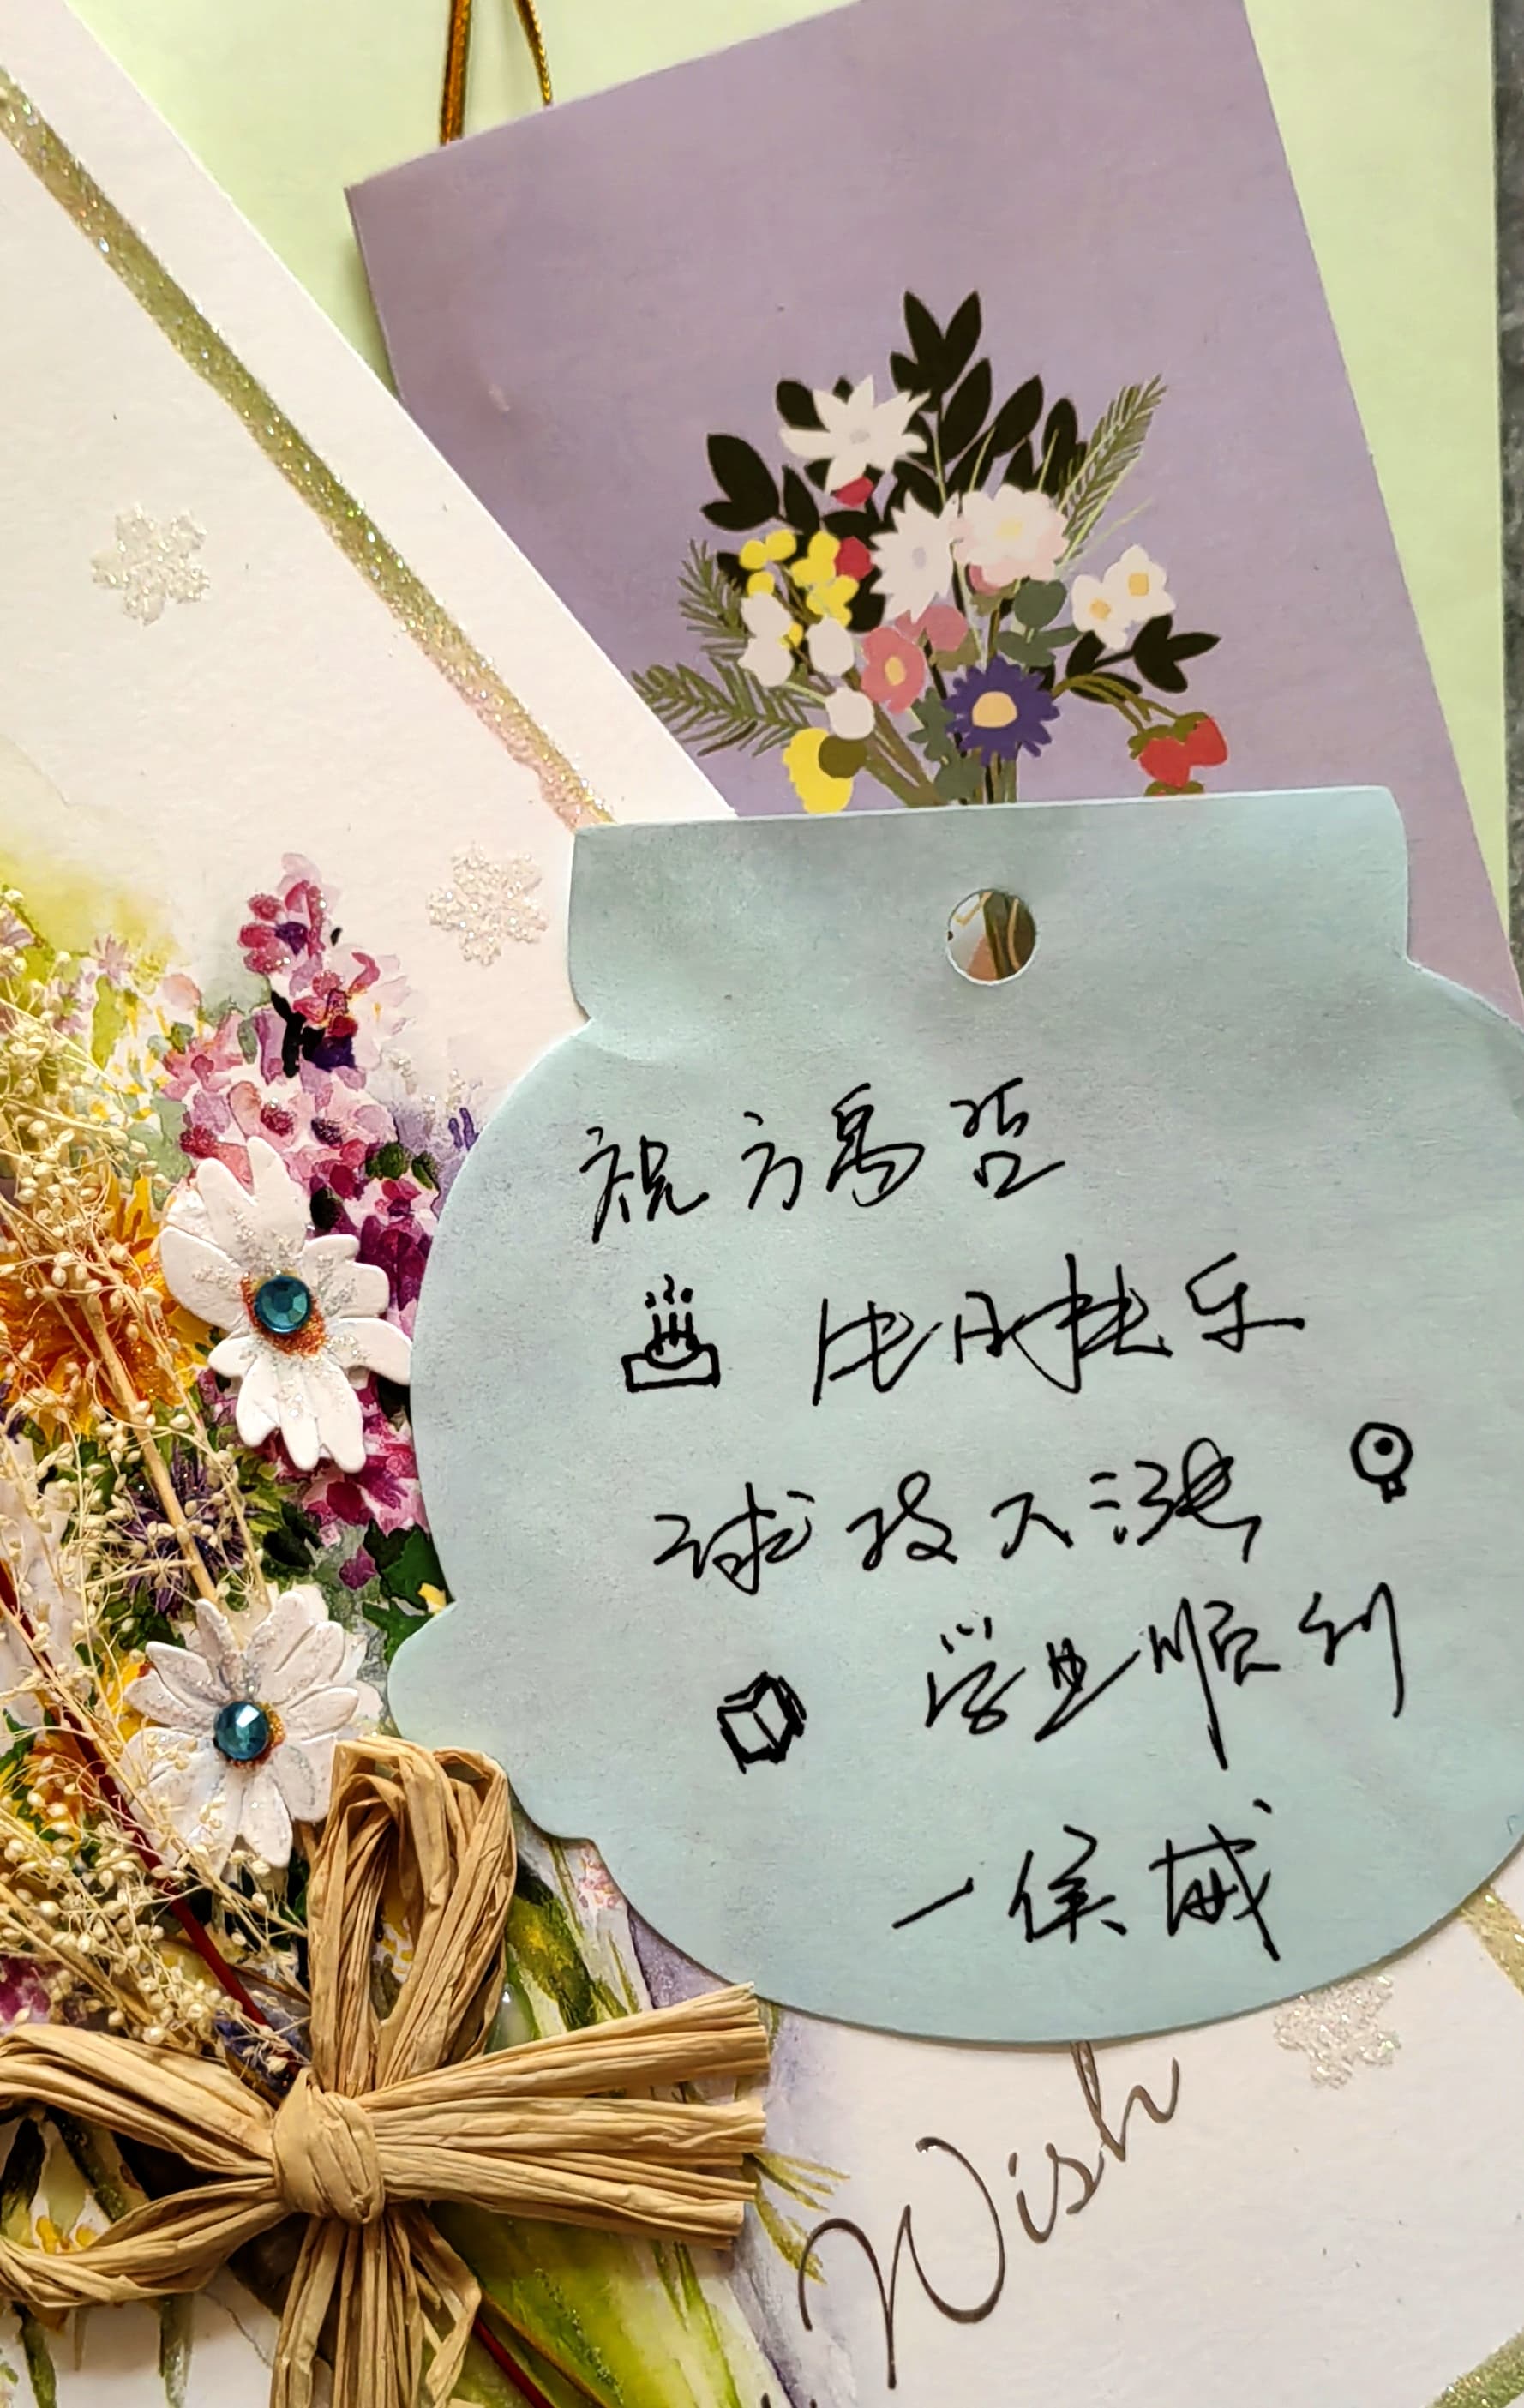 祝方禹哲
生日快乐
球技大涨
学业顺利
一侯斌
Wish